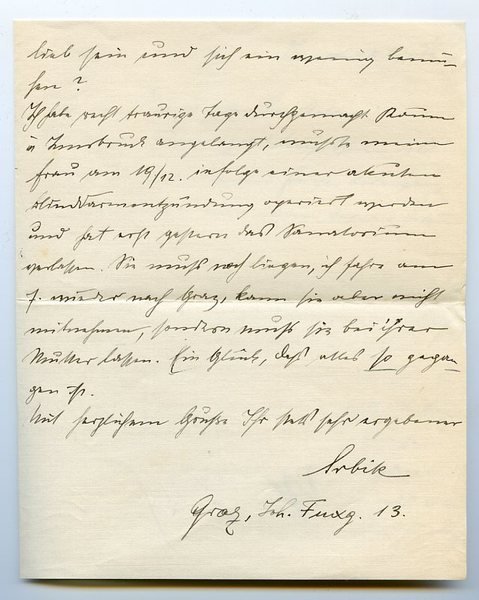 lieb sein und sich ein wenig bemü-
hen?
Ich habe recht traurige Tage durchgemacht. Kaum
in Innsbruck angelangt, mußte meine
Frau am 19/12. infolge einer akuten
Blinddarmentzündung operiert werden
und hat erst gestern das Sanatorium
verlassen. Sie muß noch liegen, ich fahre am
7. wieder nach Graz, kann sie aber nicht
mitnehmen, sondern muß sie bei ihrer
Mutter lassen. Ein Glück, daß alles so gegan
gen ist.
Mit herzlichem Gruße Ihr stets sehr ergebener
Graz, Joh. Fuxg. 13.